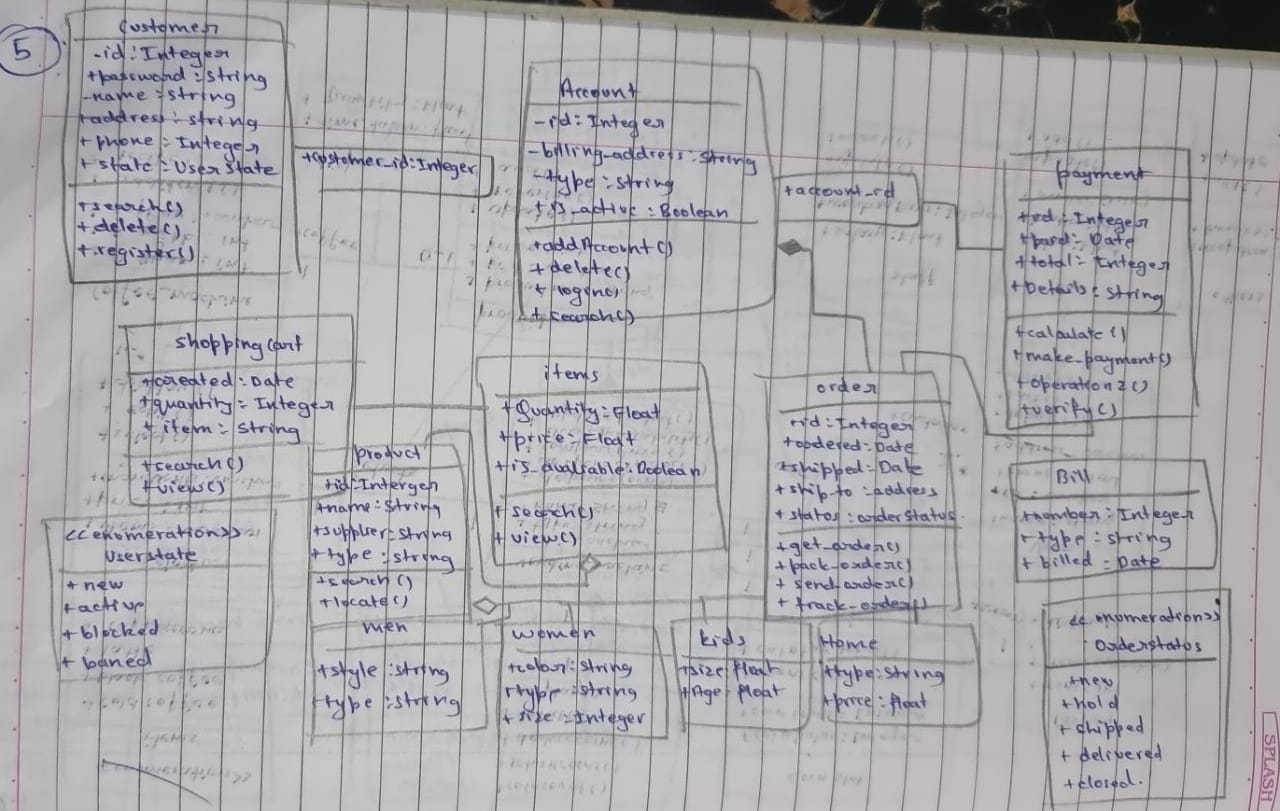 5
Customer
-id: Integer
+password: String
-name: string
+address: string
+phone: Integer
+state: User state
+search()
+delete()
+register()
+customer_id: Integer
Account
-id: Integer
-billing-address: string
-type: string
+is_active: Boolean
+add Account()
+delete()
+search()
+account_id
payment
+id: Integer
+paid: Date
+total: Integer
+Details: string
+calculate()
+make-payment()
+operation2()
+verify()
shopping cart
+created: Date
+quantity: Integer
+item: String
+search()
+view()
items
+Quantity: Float
+price: Float
+is_available: Boolean
+search()
+view()
order
+id: Integer
+ordered: Date
+shipped: Date
+ship-to: address
+status: orderstatus
+get-order()
+pack-order()
+send-order()
+track-order()
product
+id: Interger
+name: String
+supplier: string
+type: string
+search()
+locate()
Bill
+number: Integer
+type: string
+billed: Date
<<enomeration>>
Userstate
+new
+active
+blocked
+baned
men
+style: string
+type: string
women
+colour: string
+type: string
+size: Integer
kids
+size: float
+Age: float
Home
+type: string
+price: float
<<enomeration>>
orderstatus
+new
+hold
+shipped
+delivered
+closed.
SPLASH